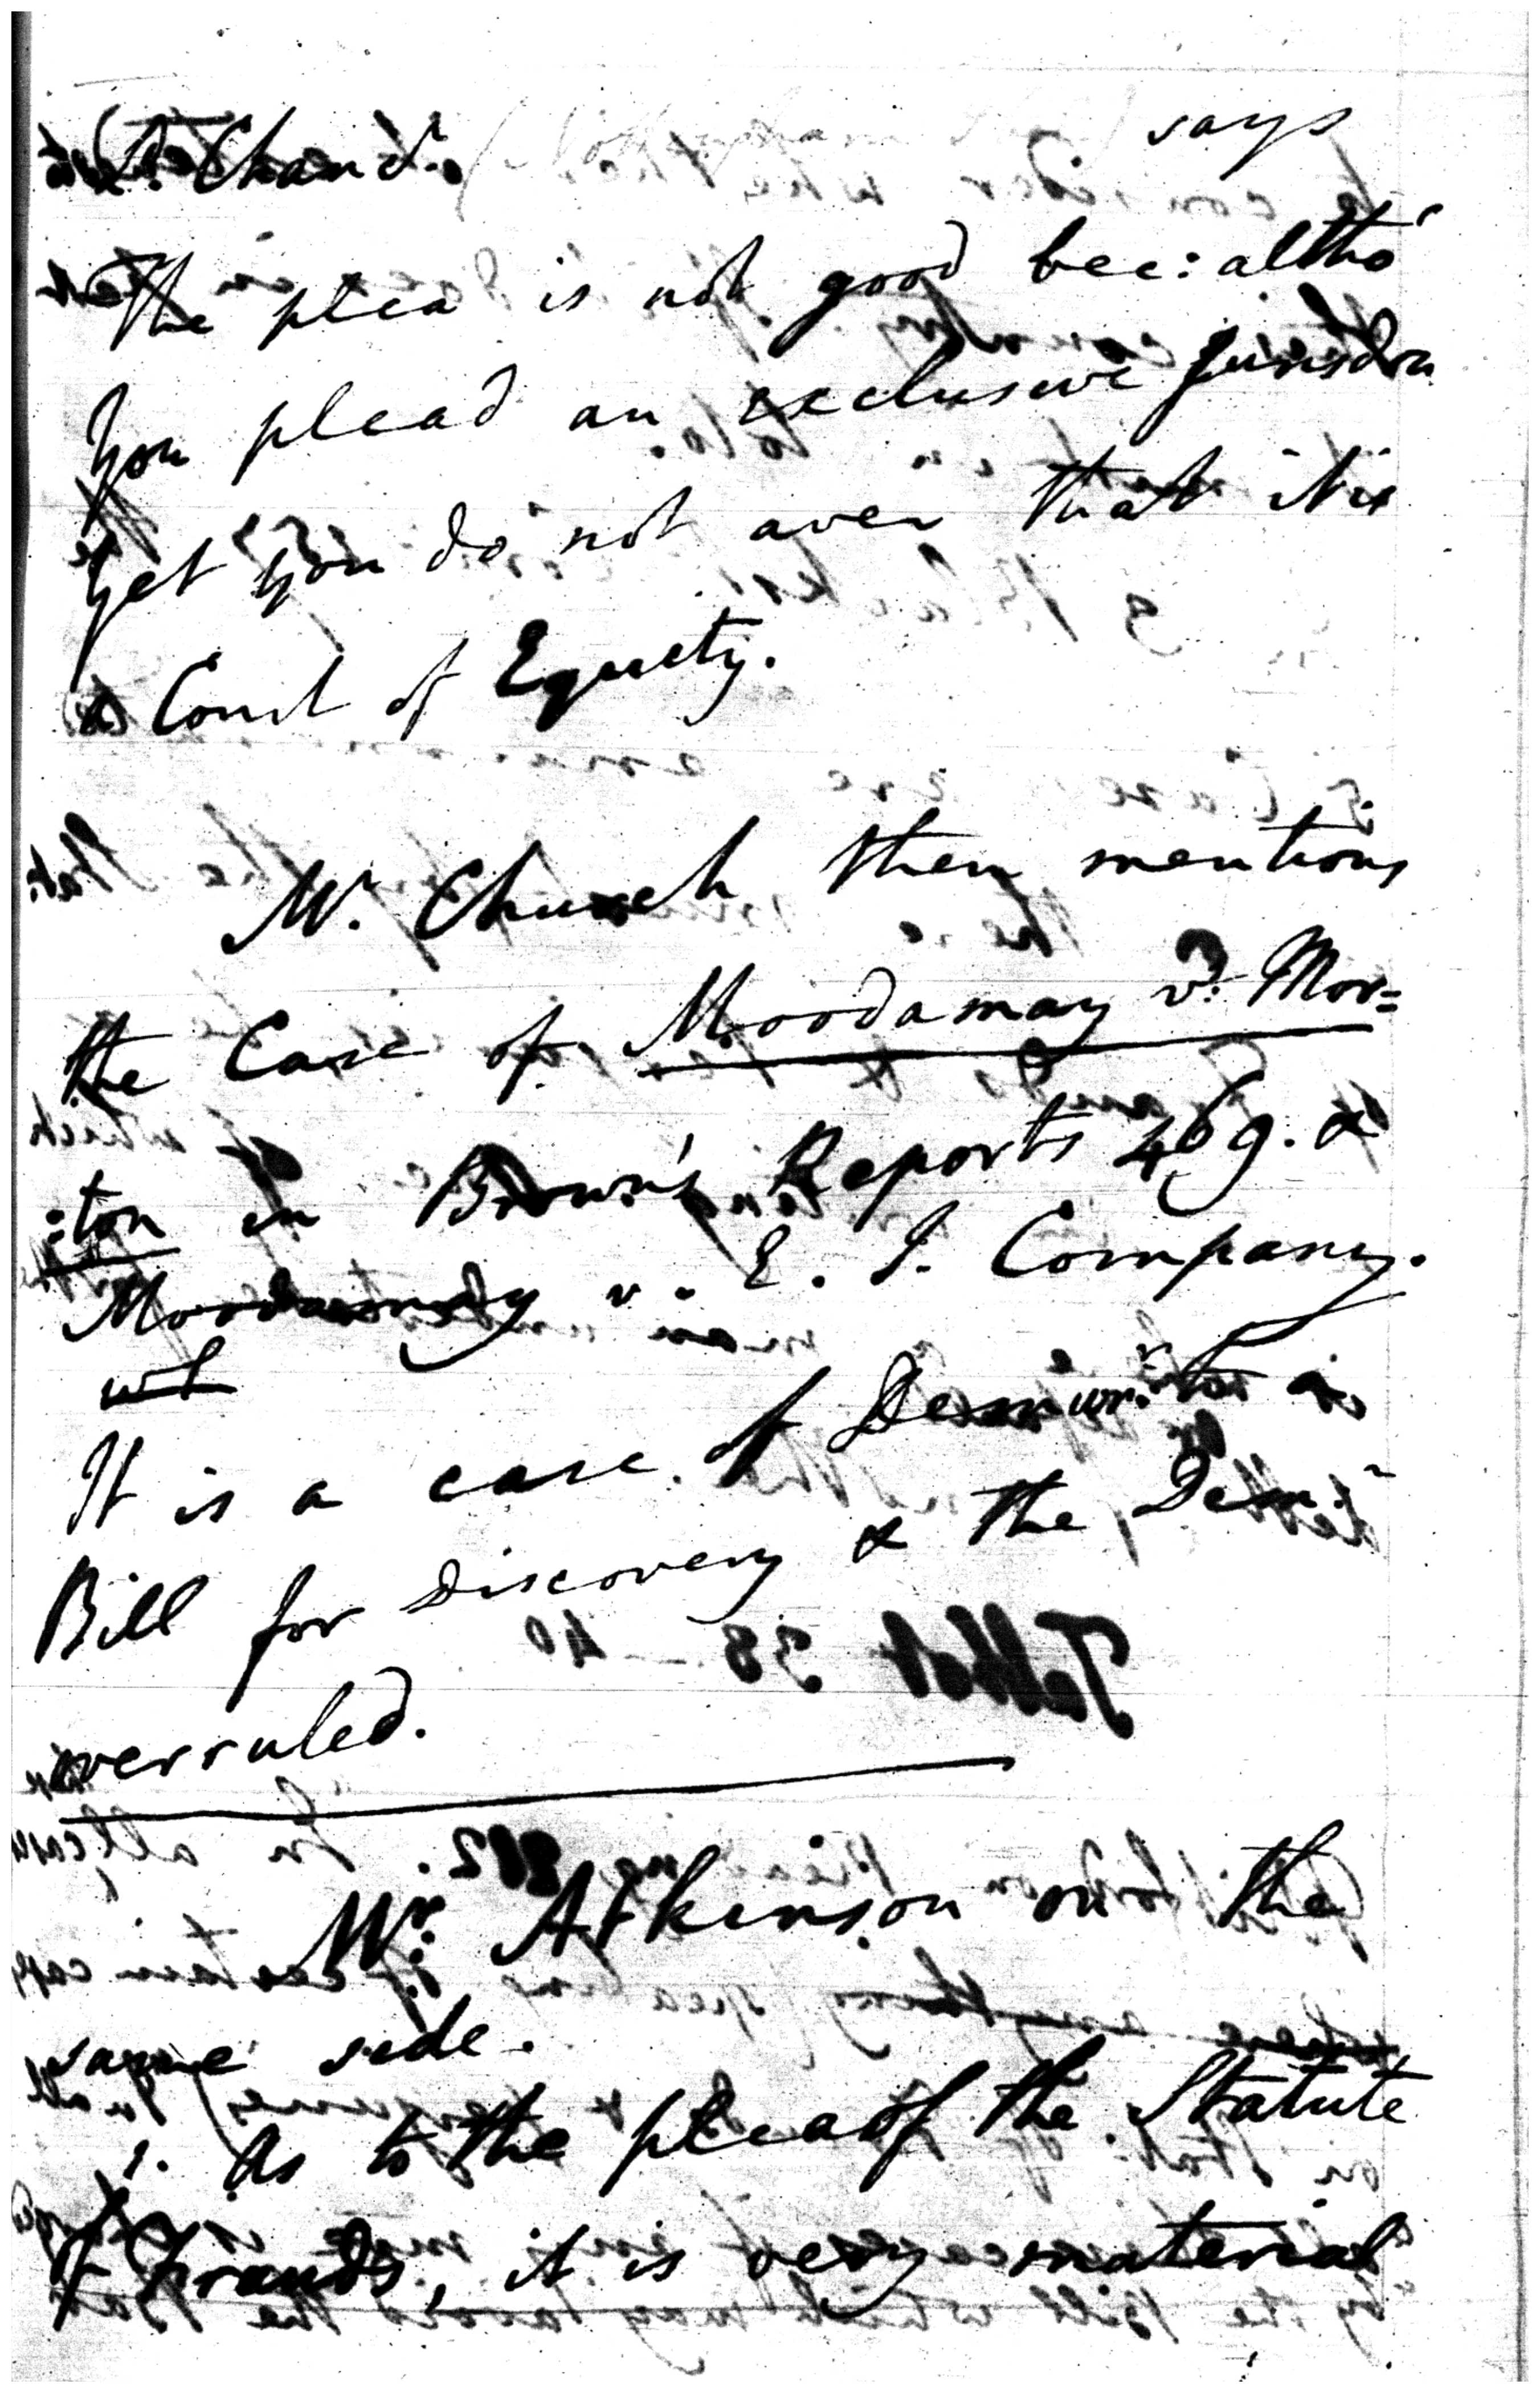 Ld. Chanc.r says
The plea is not good bec: altho'
you plead an exclusive Jurisdon
yet you do not aver that it is
a Court of Equity.
Mr. Church then mentions
the Case of Moodamay v. Mor=
:ton in Brown's Reports 469. &
Moodamay v. E. I. Company.
wh
It is a case of Demurr. to a
Bill for Discovery & the Dem.r
overruled.
Mr. Atkinson on the
same side.
1. As to the plea of the Statute
of Frauds, it is very material